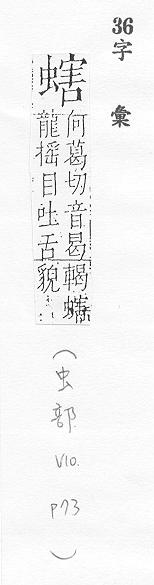 36字彙
螛 何葛切音曷轄螛
龍揺目吐舌貌
(虫部 V10. P73)